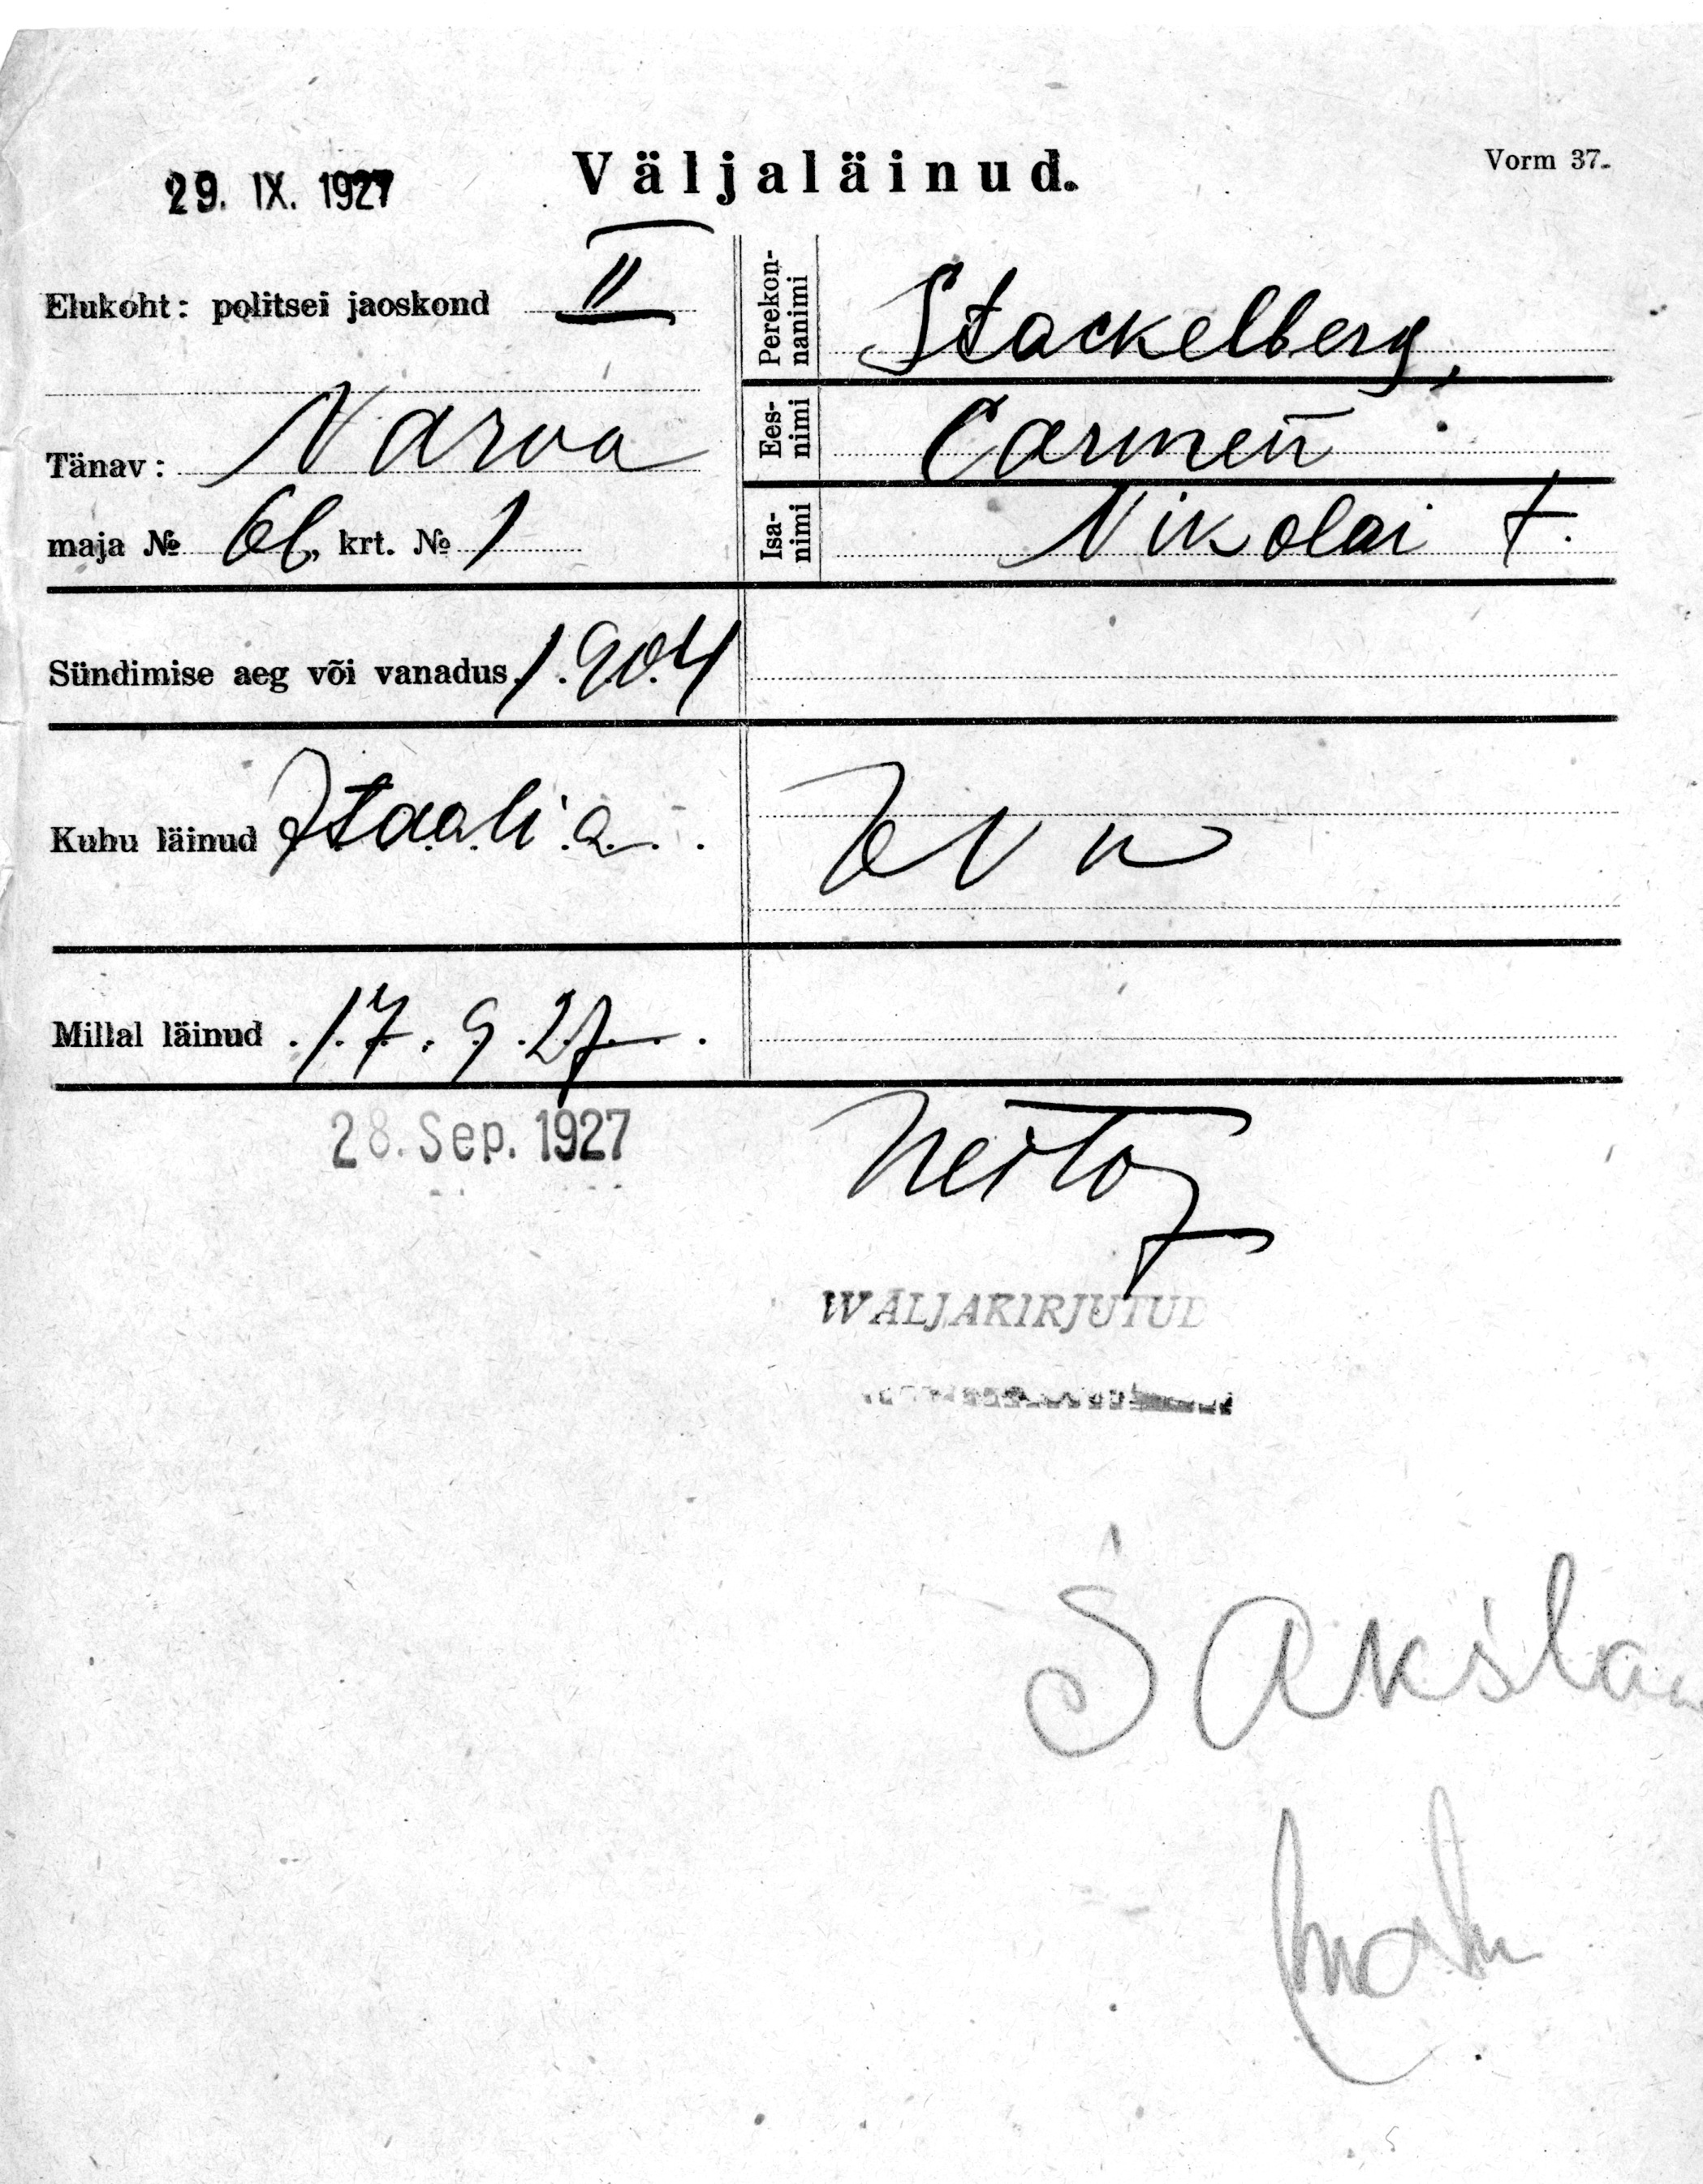 29. IX. 1927
Väljaläinud.
Vorm 37.
Elukoht: politsei jaoskond II
Tänav: Narva
maja № 6b, krt. № 1
Perekon-
nanimi
Stackelberg,
Ees-
nimi
Carmen
Isa-
nimi
Nikolai t.
Sündimise aeg või vanadus 1904
Kuhu läinud Itaalia
Millal läinud 17.9.27
28. Sep. 1927
WALJAKIRJUTUD